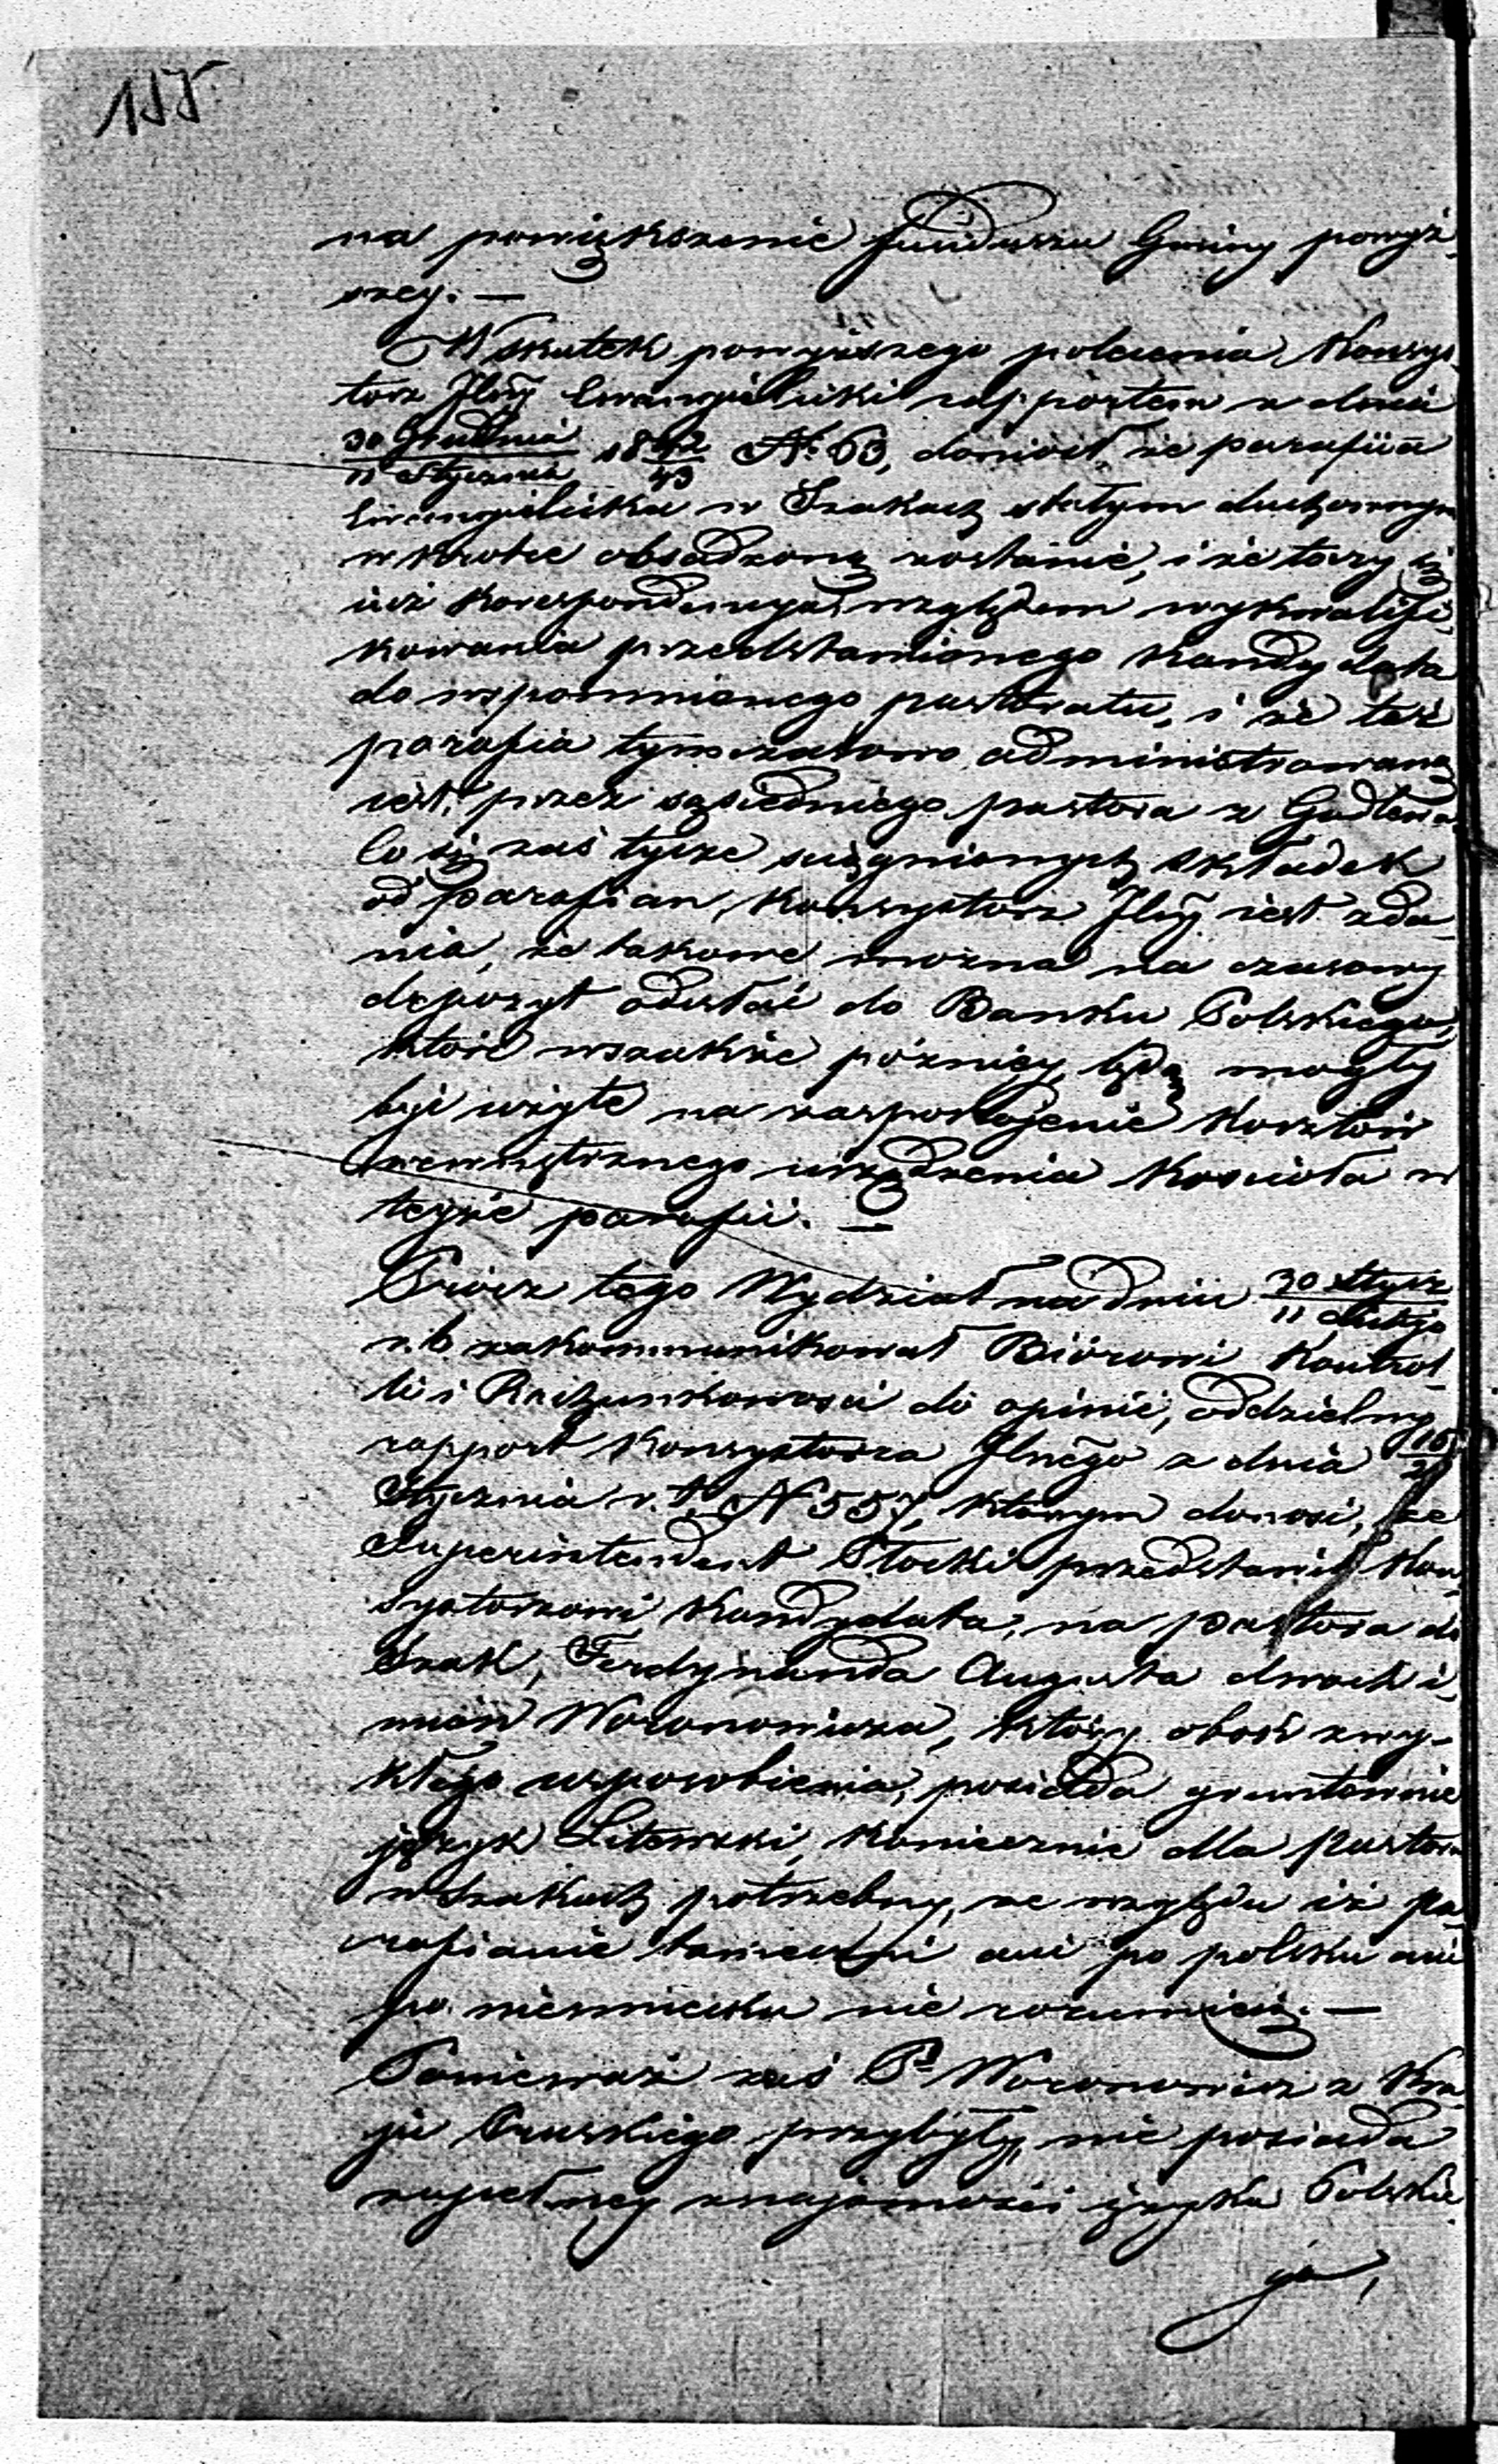 155
na powiększenie funduszu Gminy powyż
szey. —
W skutek powyższego polecenia, Konsys
torz Jlny Ewangielicki rapportem z dnia
30 Grudnia / 11 Stycznia 1842/43 N. 63, doniosł że parafiia
Ewangielicka w Szakach stałym duchownym
w krotce obsadzoną zostanie, i że toczy się
iuż korespondencya względem wykwalifi
kowania przedstawionego Kandydata
do wspomnionego pastoratu, i że też
parafia tymczasowo administrowaną
iest przez sąsiedniego pastora z Godlewa
Co się zaś tycze ściągnionych składek
od parafian, Konsystorz Jlny iest zda
nia, że takowe można na czasowy
depozyt odesłać do Banku Polskiego,
które wszakże pózniey, będą mogły
być użyte na zaspokojenie kosztów
wewnętrznego urządzenia Kościoła w
teyże parafii. —
Prócz tego Wydział na dniu 30 Stycz / 11 Lutego
r. b. zakommunikował Biórowi Kontrol
li i Rachunkowości do opinii, oddzielny
rapport Konsystorza Jlnego z dnia 16/2
Stycznia r. t. N 557, którym donosi, że
Superintendent Płocki przedstawił Kon
systorzowi Kandydata, na pastora do
Szak, Ferdynanda Augusta dwoch i
mion Woronowicza, który obok zwy-
kłego usposobienia, posiada gruntownie
język Litewski, koniecznie dla pastora
w Szakach potrzebny, ze względu iż pa
rafianie tameczni ani po polsku ani
po niemiecku nie rozumieią. —
Ponieważ zaś P. Woronowicz z Kra
ju Pruskiego przybyły, nie posiada
zupełney znajomości języka Polskie
go,